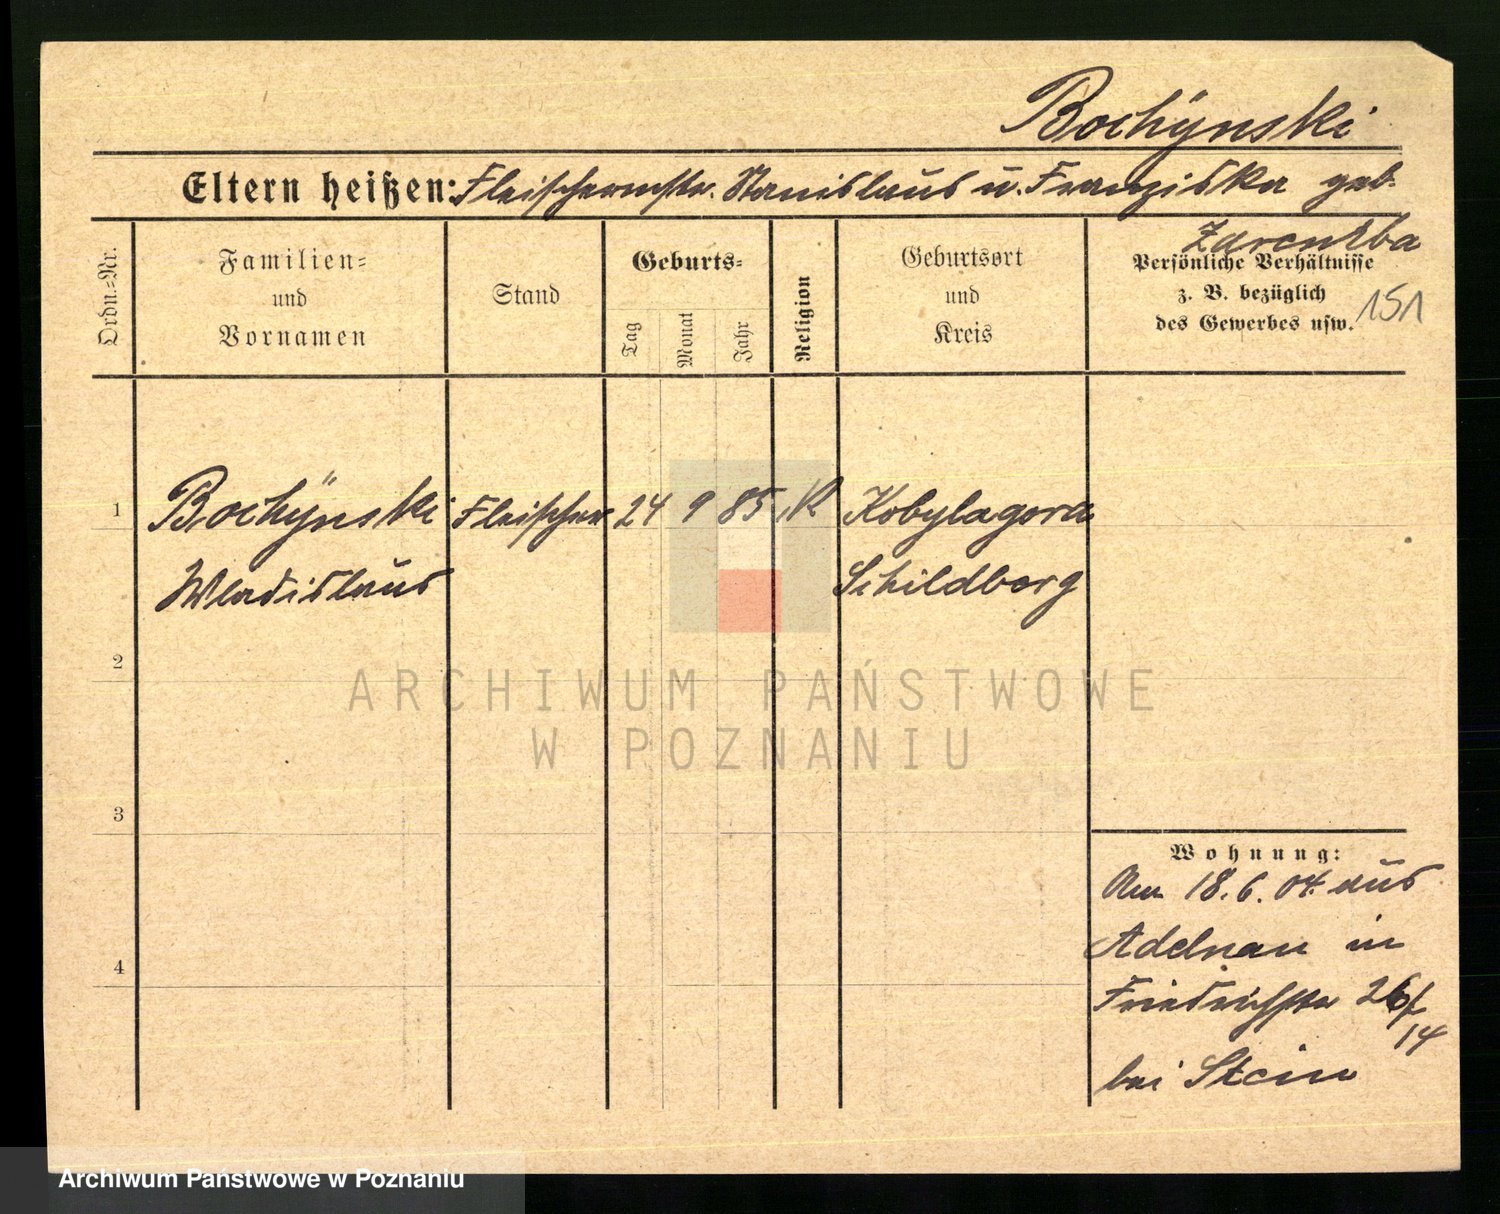 Bochÿnski
Eltern heißen: Fleischermstr. Stanislaus u. Franziska geb.
Zarentba
Ordn.-Nr.
Familien-
und
Vornamen
Stand
Geburts-
Tag
Monat
Jahr
Religion
Geburtsort
und
Kreis
Persönliche Verhältnisse
z. B. bezüglich
des Gewerbes usw.
151
1
Bochÿnski Fleischer 24 9 85 K Kobylagora
Wladislaus Schildberg
2
3
4
Wohnung:
Am 18.6.04. aus
Adelnau in
Friedrichstr 26/
14
bei Stein
ARCHIWUM PAŃSTWOWE
W POZNANIU
Archiwum Państwowe w Poznaniu